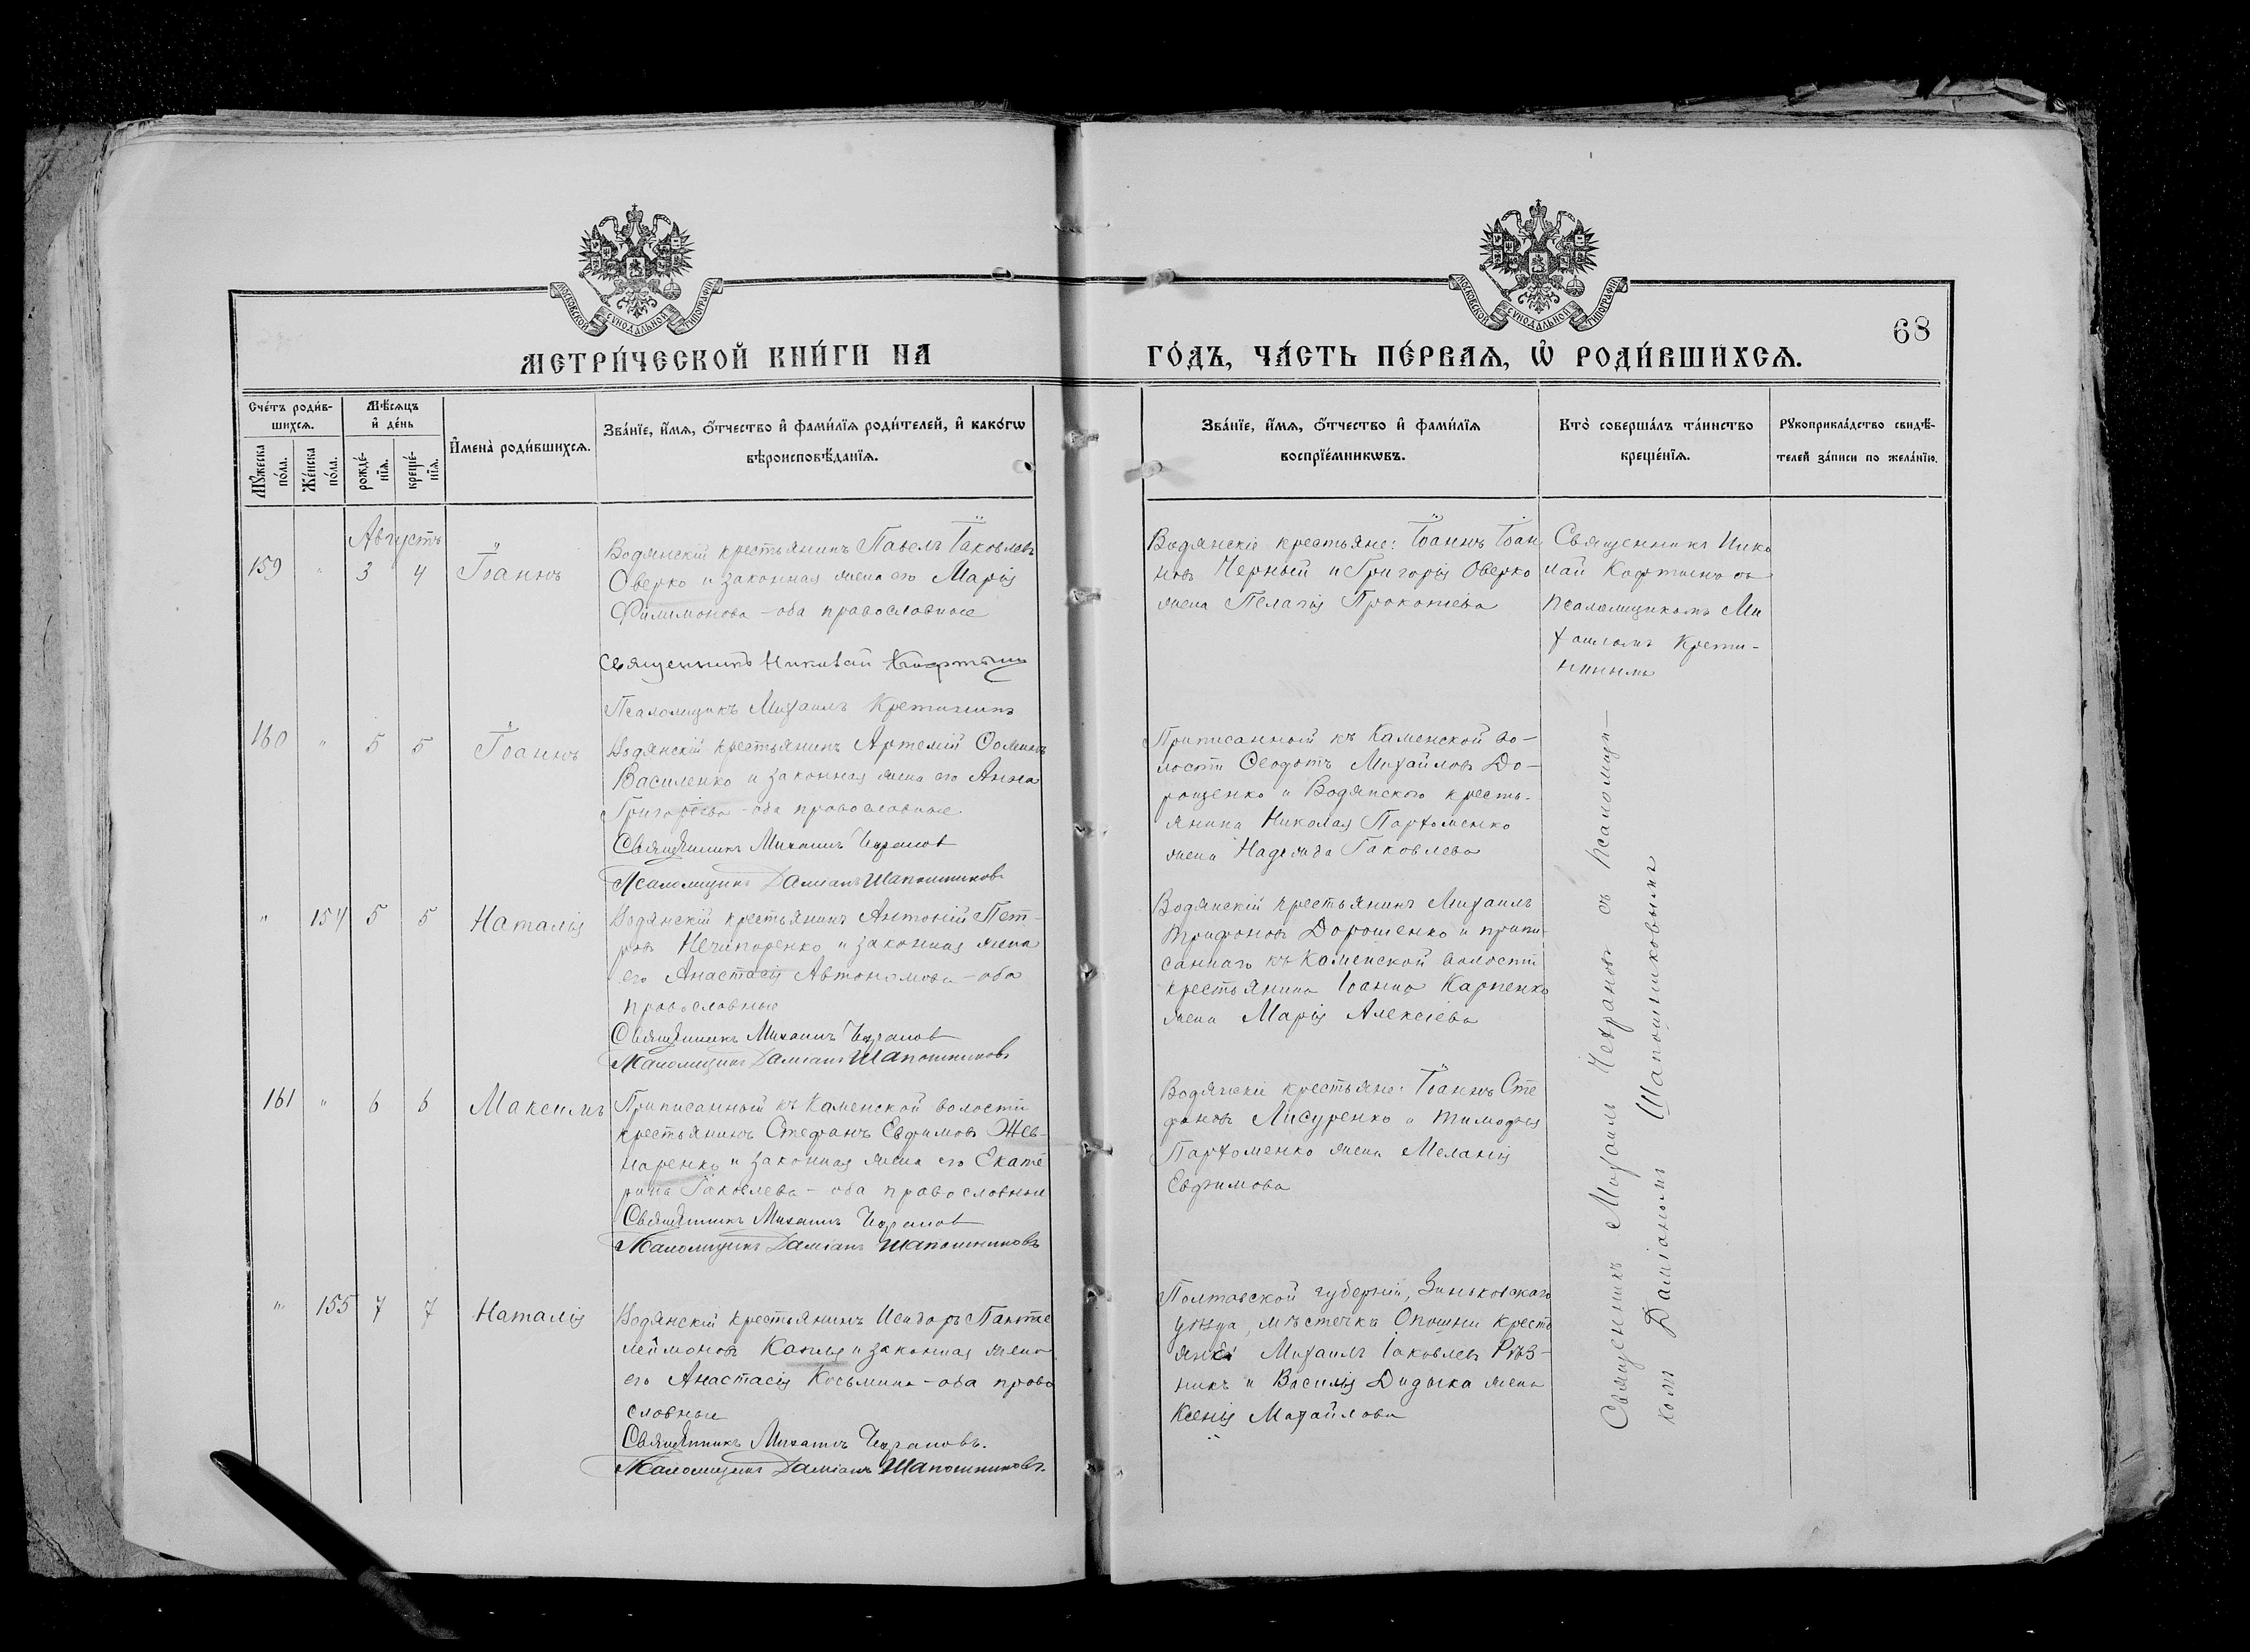 МОСКОВСКОЙ СѴНОДАЛЬНОЙ ТИПОГРАФІИ
МОСКОВСКОЙ СѴНОДАЛЬНОЙ ТИПОГРАФІИ
68
МЕТРИ́ЧЕСКОЙ КНИ́ГИ НА
ГО́ДЪ, ЧА́СТЬ ПЕ́РВАѦ, Ѡ҆ РОДИ́ВШИХСѦ.
Сче́тъ роди́в-
шихсѧ.
Мѣ́сѧцъ
и҆ де́нь
Мꙋ́жеска
по́ла.
Же́нска
по́ла.
рожде́-
нїѧ.
креще́-
нїѧ.
И҆мена̀ роди́вшихсѧ.
Зва́нїе, и҆́мѧ, ѻ҆́тчество и҆ фами́лїѧ роди́телей, и҆ како́гѡ
вѣроисповѣ́данїѧ.
Зва́нїе, и҆́мѧ, ѻ҆́тчество и҆ фами́лїѧ
воспрїе́мникѡвъ.
Кто̀ соверша́лъ та́инство
креще́нїѧ.
Рꙋкоприкла́дство свидѣ́-
телей за́писи по жела́нїю.
Августъ
159 " 3 4 Іоаннъ
Водянскій крестьянинъ Павелъ Іаковлевъ
Оверко и законная жена его Марія
Филимонова - оба православные
Священникъ Николай
Псаломщикъ Михаилъ Кретининъ
Водянскіе крестьяне: Іоаннъ Іоан
новъ Черный и Григорія Оверко
жена Пелагія Прокопіева
Священникъ Нико
лай Кафтановъ съ
псаломщикомъ Ми
хаиломъ Крети-
нинымъ
160 " 5 5 Іоаннъ
Водянскій крестьянинъ Артемій Ѳоминъ
Василенко и законная жена его Анна
Григорьева - оба православные
Священникъ Михаилъ Чехрановъ
Псаломщикъ Даміанъ Шапошниковъ
Приписанный къ Каменской во-
лости Ѳеодотъ Михайловъ До-
рошенко и Водянского кресть-
янина Николая Пархоменко
жена Надежда Іаковлева
" 154 5 5 Наталія
Водянскій крестьянинъ Антоній Пет-
ровъ Нечипоренко и законная жена
его Анастасія Автономова - оба
православные
Священникъ Михаилъ Чехрановъ
Псаломщикъ Даміанъ Шапошниковъ
Водянскій крестьянинъ Михаилъ
Трифоновъ Дорошенко и припи-
саннаго къ Каменской волости
крестьянина Іоанна Карпенко
жена Марія Алексіева
161 " 6 6 Максимъ
Приписанный къ Каменской волости
крестьянинъ Стефанъ Евфимовъ Жев-
наренко и законная жена его Екате
рина Іаковлева - оба православные
Священникъ Михаилъ Чехрановъ
Псаломщикъ Даміанъ Шапошниковъ
Водянскіе крестьяне: Іоаннъ Сте
фановъ Лисуренко и Тимофея
Пархоменко жена Меланія
Евфимова
" 155 7 7 Наталія
Водянскій крестьянинъ Исидоръ Панте
леймоновъ Капля и законная жена
его Анастасія Косьмина - оба право
славные
Священникъ Михаилъ Чехрановъ.
Псаломщикъ Даміанъ Шапошниковъ.
Полтавской губерніи, Зиньковскаго
уѣзда, мѣстечка Опошни кресть
яне Михаилъ Іаковлевъ Рѣз-
никъ и Василія Дидыка жена
Ксенія Михайлова
Священникъ Михаилъ Чехрановъ съ псаломщи-
комъ Даміаномъ Шапошниковымъ